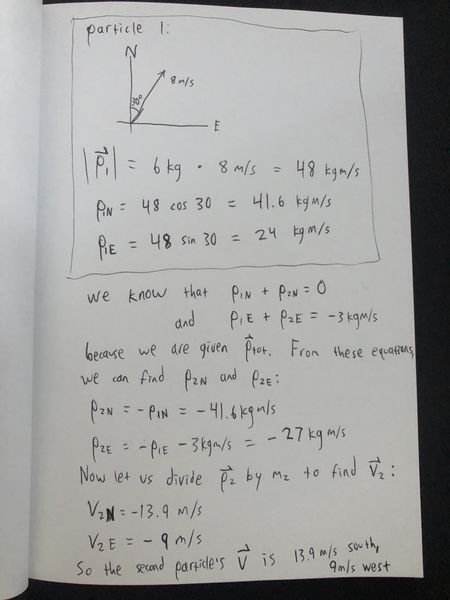 particle 1:
N
8 m/s
30°
E
|p⃗₁| = 6 kg · 8 m/s = 48 kgm/s
p1N = 48 cos 30 = 41.6 kgm/s
p1E = 48 sin 30 = 24 kgm/s
we know that p1N + p2N = 0
and p1E + p2E = -3kgm/s
because we are given p⃗tot. From these equations,
we can find p2N and p2E:
p2N = -p1N = -41.6kgm/s
p2E = -p1E - 3kgm/s = -27kgm/s
Now let us divide p⃗2 by m2 to find V⃗2:
V2N = -13.9 m/s
V2E = -9 m/s
So the second particle's V⃗ is 13.9m/s south,
9m/s west